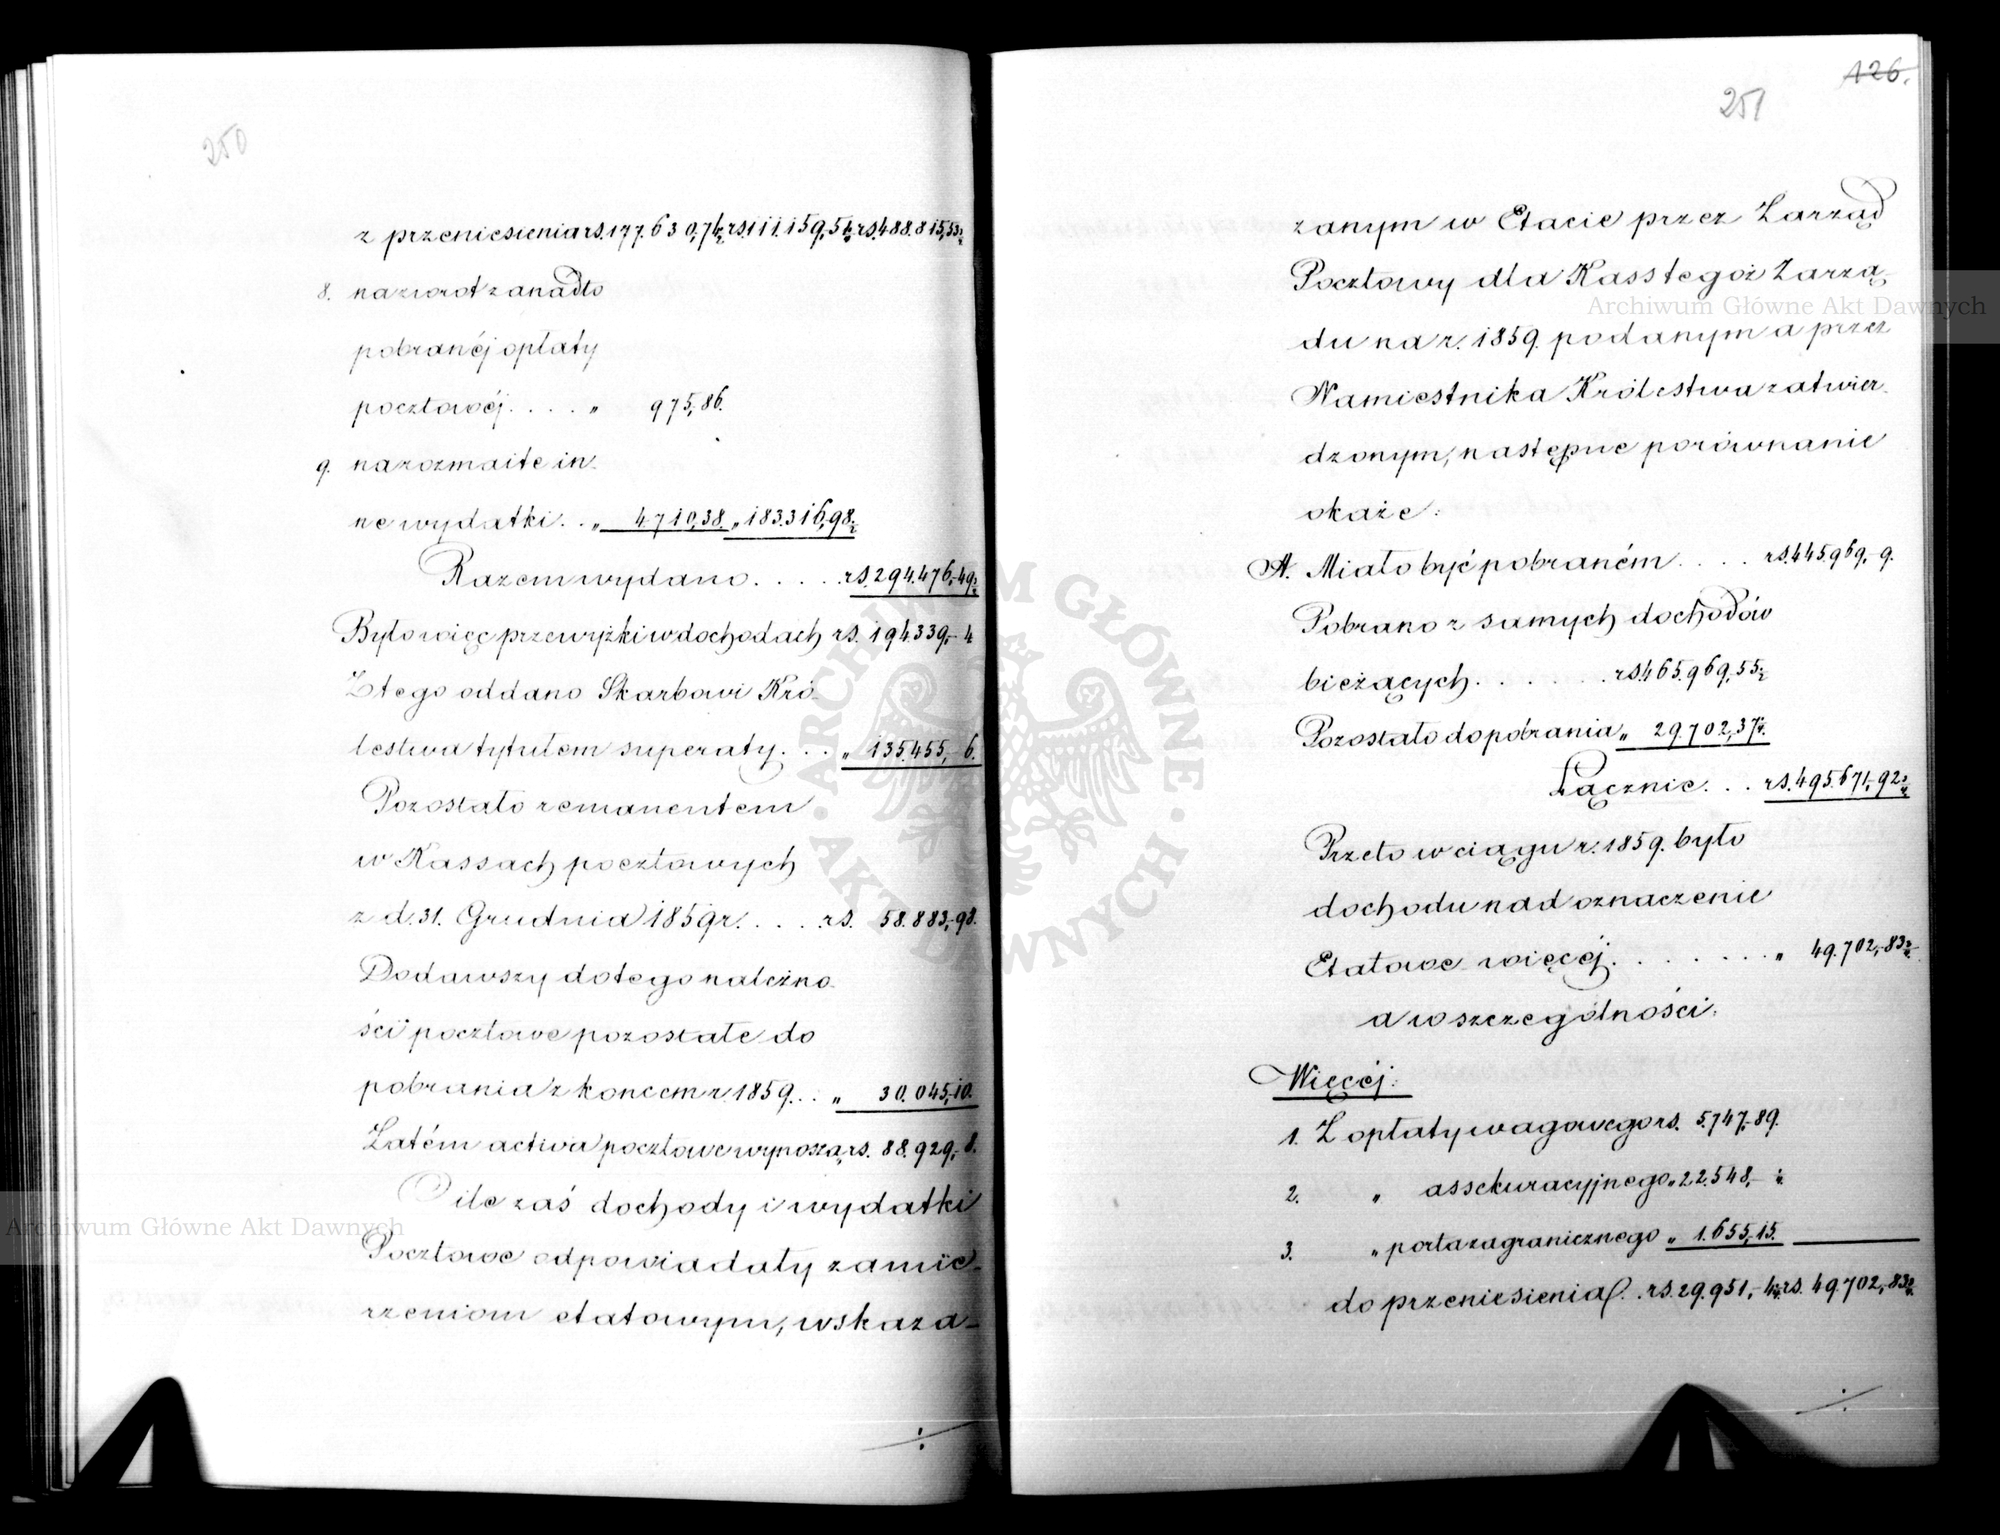 250
z przeniesienia rs. 177.630,7½ rs. 111.159,51 rs. 488.815,53½
8. na zwrot zanadto
pobranéj opłaty
pocztowéj . . . . „ 975,86.
9. na rozmaite in-
ne wydatki . . „ 4.710,38. „ 183.316,98½
Razem wydano . . . . . rs. 294.476,49½
Było więc przewyżki w dochodach rs. 194.339,- 4
Z tego oddano Skarbowi Kró-
lestwa tytułem superaty . . . „ 135.455,- 6.
Pozostało remanentem
w Kassach pocztowych
z d. 31. Grudnia 1859 r. . . . . rs. 58.883,-98.
Dodawszy do tego należno-
ści pocztowe pozostałe do
pobrania z końcem r. 1859. . : „ 30.045,-10.
Zatém activa pocztowe wynoszą rs. 88.929,- 8.
O ile zaś dochody i wydatki
Pocztowe odpowiadały zamie-
rzeniom etatowym, wskaza-
÷
126.
251
zanym w Etacie przez Zarząd
Pocztowy dla Kass tegoż Zarzą-
du na r. 1859. podanym a przez
Namiestnika Królestwa zatwier-
dzonym, następne porównanie
okaże:
A. Miało być pobraném . . . . rs. 445.969,- 9.
Pobrano z samych dochodów
bieżących . . . . . . . rs. 465.969,55½
Pozostało do pobrania „ 29.702,37¼.
Łącznie . . . rs. 495.671,-92¾
Przeto w ciągu r. 1859. było
dochodu nad oznaczenie
Etatowe więcéj . . . . . . . „ 49.702,-83¾
a w szczególności:
Więcéj:
1. Z opłaty wagowego rs. 5.747,-89.
2. „ assekuracyjnego „ 22.548,- „
3. „ porta zagranicznego „ 1.655,-15.
do przeniesienia . . rs. 29.951,-4¼ rs. 49.702,-83¾
÷
Archiwum Główne Akt Dawnych
Archiwum Główne Akt Dawnych
ARCHIWUM GŁÓWNE · AKT DAWNYCH ·